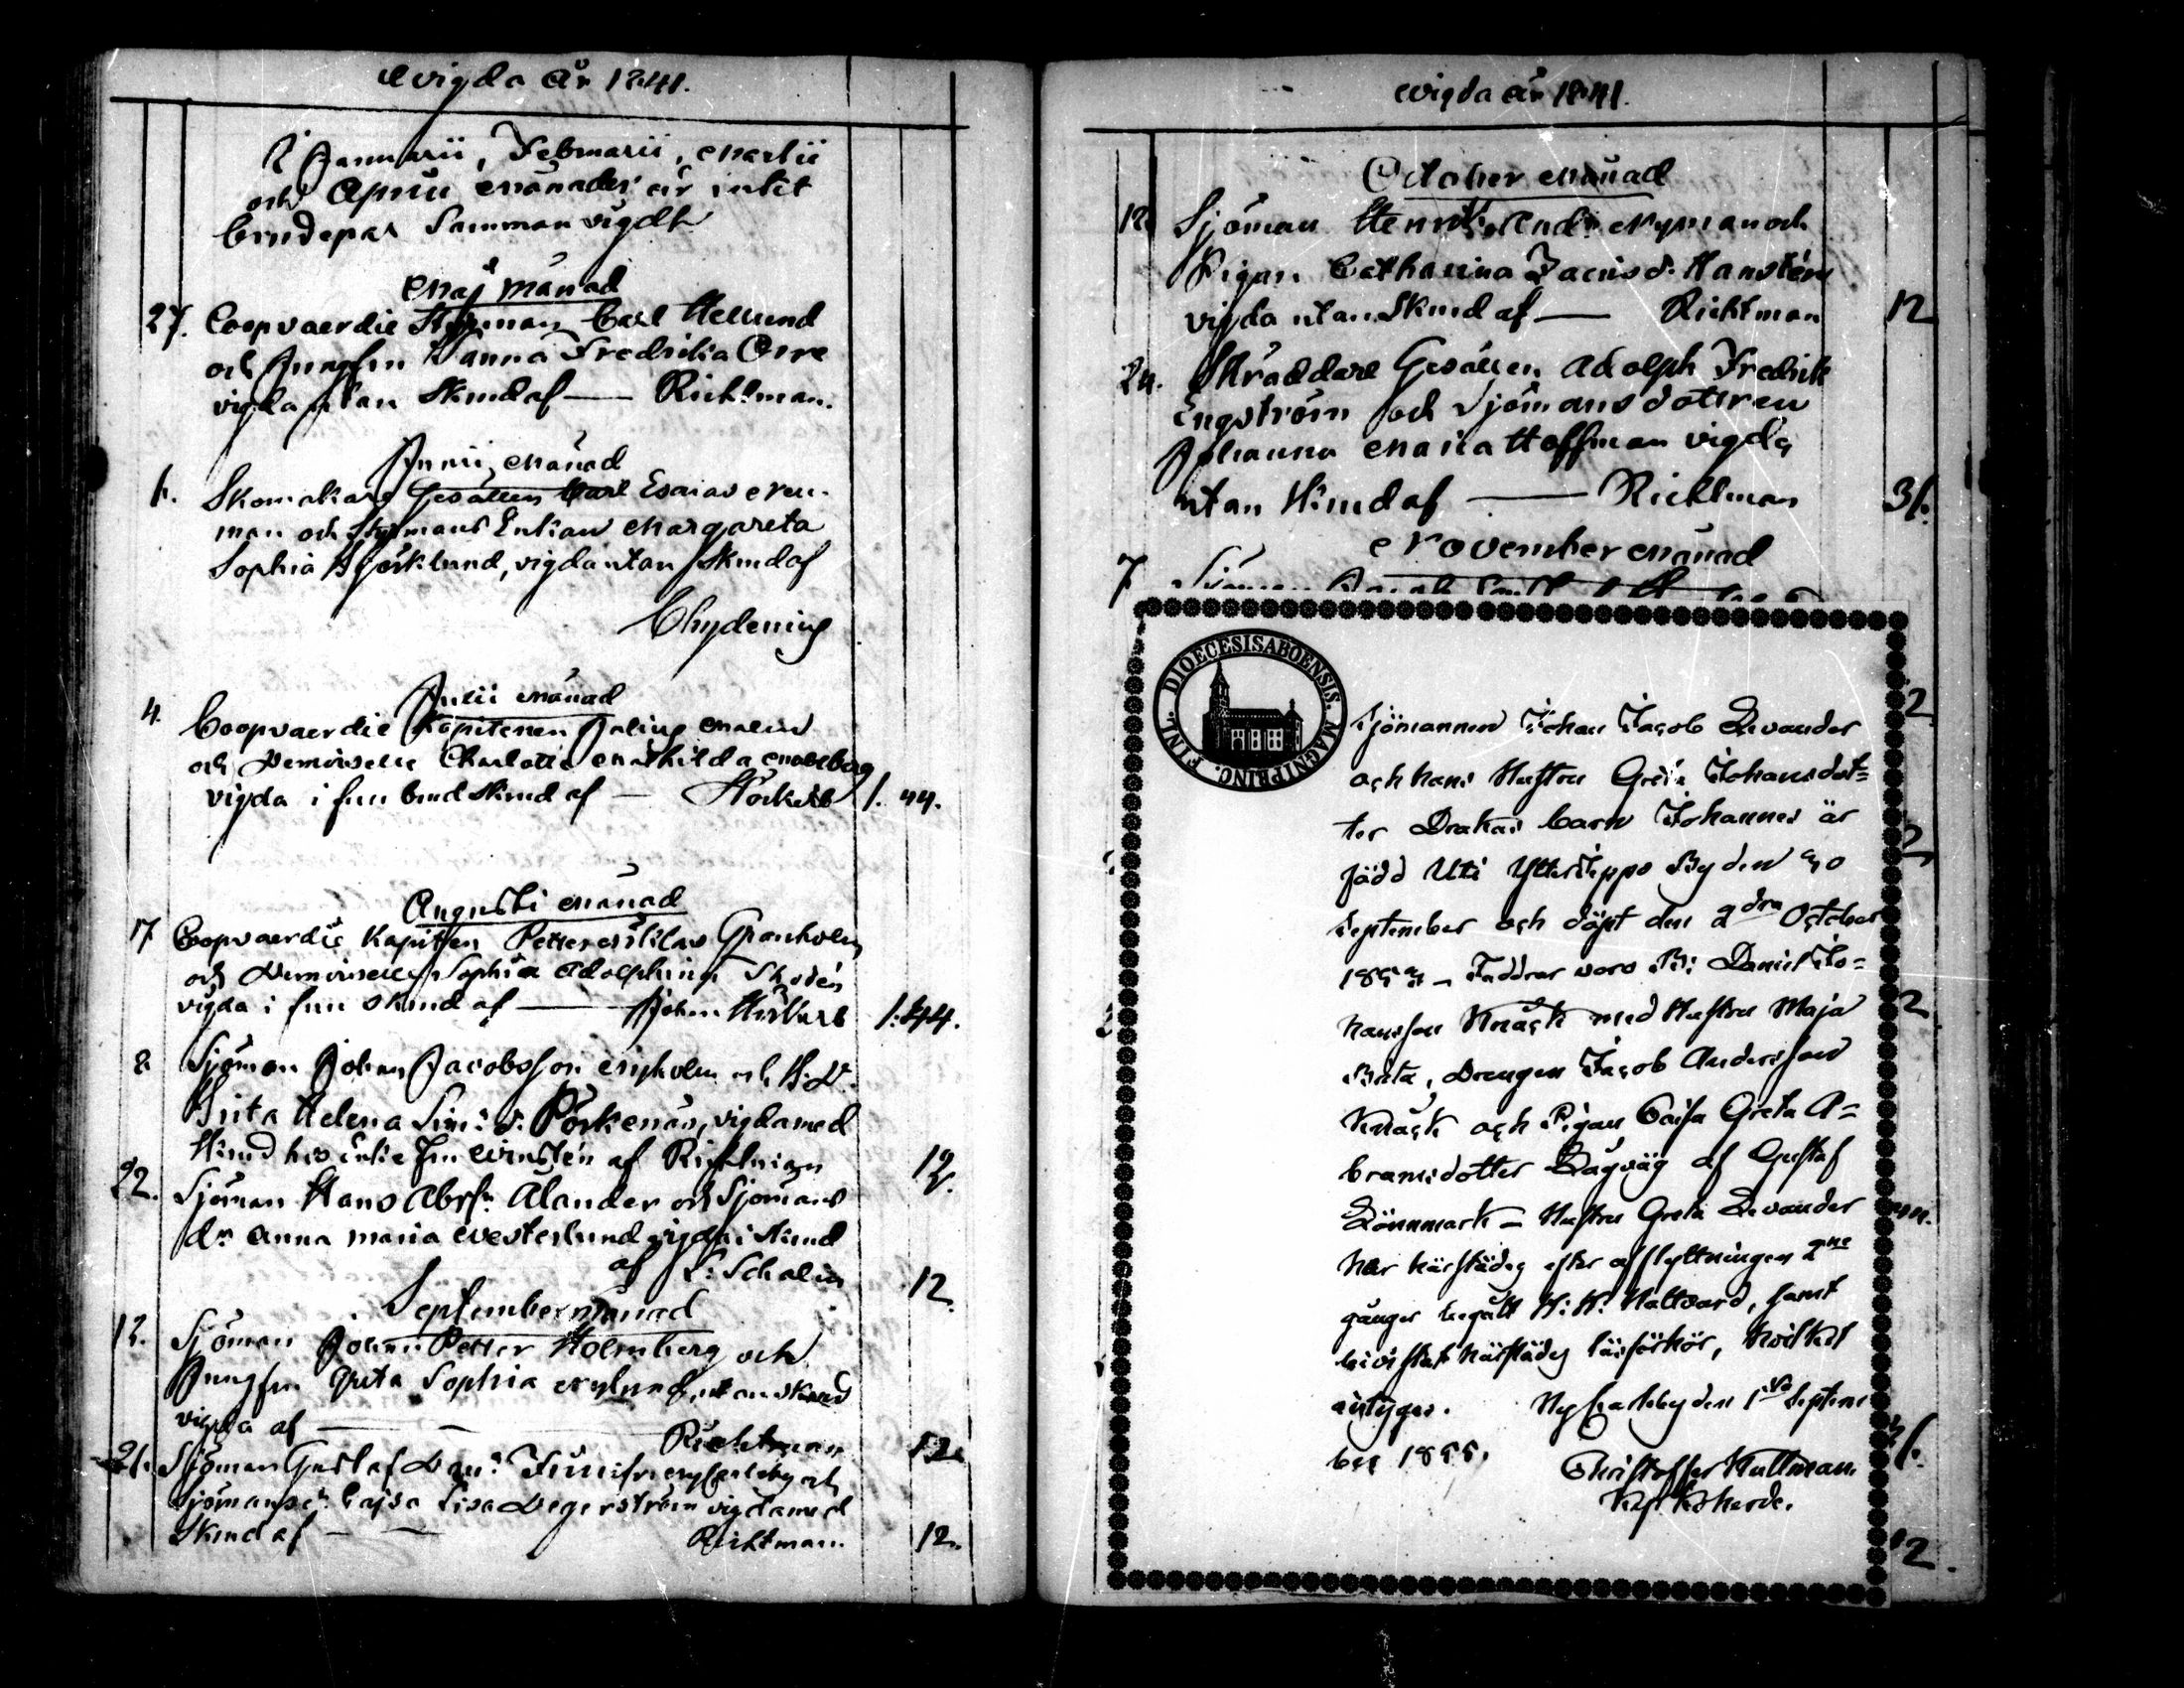 Wigda År 1841.
I Januarii, Februarii, Martii
och Aprill Månader är intet
Brudepar Sammanvigdt
Maj månad
27. Coopvaerdie Styrman Carl Hellund
och Jungfru Hanna Fredrika Orre
vigda utan Skrud af — Richtman.
Junii Månad
1. Skomakare Gesällen Carl Esaias Neu-
man och Styrmans Enkan Margareta
Sophia Björklund, vigda utan Skrud af
Chydenius
Julii Månad
4. Coopvaerdie Kapitenen Julius Malin
och Demoiselle Charlotta Mathilda
vigda i full brudskrud af — 1. 44.
Augusti Månad
17 Coopvaerdie Kapiten Petter Niklas Granholm
och Demoiselle Sophia Adolphina
vigda i full Skrud af — 1:44.
8 Sjöman Johan Jacobsson Nyholm och B. D.
Brita Helena Sim: d: vigda med
Skrud hos af Richtman 12.
22. Sjöman Hans Abrs:n Ålander och Sjömans
d:r Anna Maria Westerlund vigda i Skrud
af Schalin 12.
September månad
12. Sjöman Johan Petter Holmberg och
Jungfru Greta Sophia Nylund, utan skrud
vigda af — — Richtman 12.
21. Sjöman Gustaf Dan: fr. Nycarleby och
Sjömansd:r Cajsa Lisa Degerström vigda med
Skrud af — — Richtman. 12.
Wigda År 1841.
October Månad
12. Sjöman Henrik And: Nyman och
Pigan Catharina Hanstén
vigda utan Skrud af — Richtman 12
24. Skräddare Gesällen Adolph Fredrik
Engström och Sjömansdottren
Johanna Maria Hoffman vigda
utan Skrud af — Richtman 31.
November Månad
7. Sjöman
DIOECESIS ABOENSIS. MAGNI PRINC. FINL.
Sjömannen Johan Jacob Levander
och hans Hustru Greta Johansdot=
ter Drakas barn Johannes är
född Uti Ytterjeppo By den 30
September och döpt den 2dra October
1853 — Faddrar woro B: Daniel Jo=
hansson Knåck med Hustru Maja
Brita, Drengen Jacob Andersson
Knåck och Pigan Caisa Greta A=
bramsdotter Dågväg af Gustaf
Lönnmark — Hustru Greta Levander
har härstädes efter afflyttningen 2ne
gånger begått H: H: Nattvard, samt
bivistat härstädes läsförhör, hvilket
intygas. Ny Carleby den 1sta Septem
ber 1855.
Christoffer Hultman.